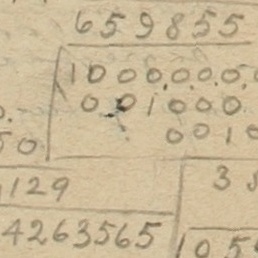 659855
1000.0.0.0
0 01000
50 0010
129 3
4263565 105